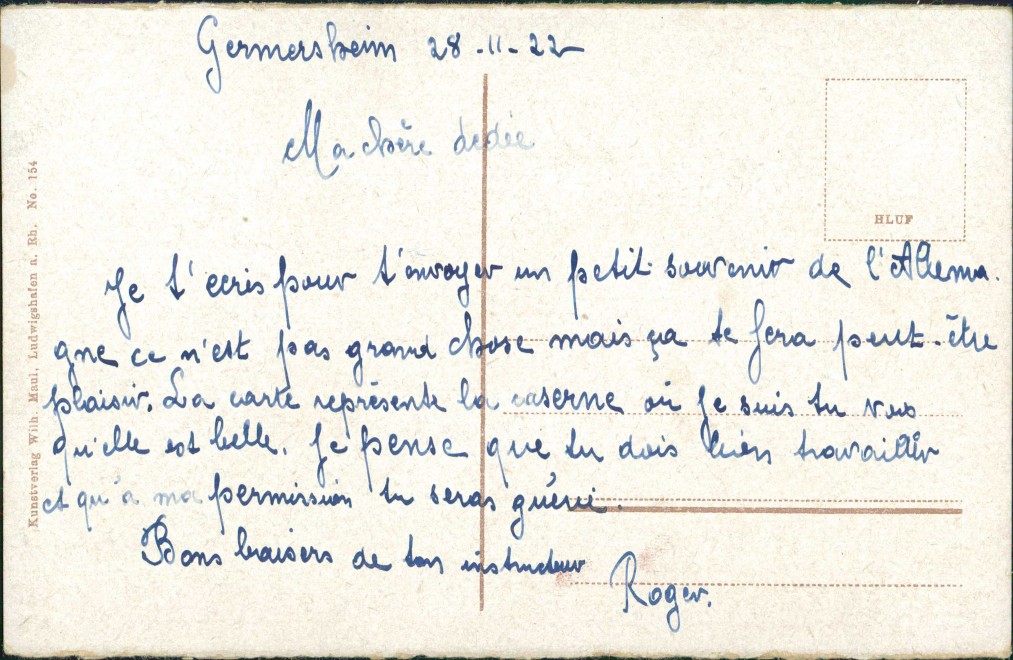 Germersheim 28-11-22
Ma chère dédée
Je t'ecris pour t'envoyer un petit souvenir de l'Allema.
gne ce n'est pas grand chose mais ça te fera peut-être
plaisir. La carte représente la caserne où je suis tu vois
qu'elle est belle. Je pense que tu dois bien travailler
et qu'à ma permission tu seras guérie.
Bons baisers de ton instructeur
Roger.
HLUF
Kunstverlag Wilh. Maul, Ludwigshafen a. Rh. No. 154